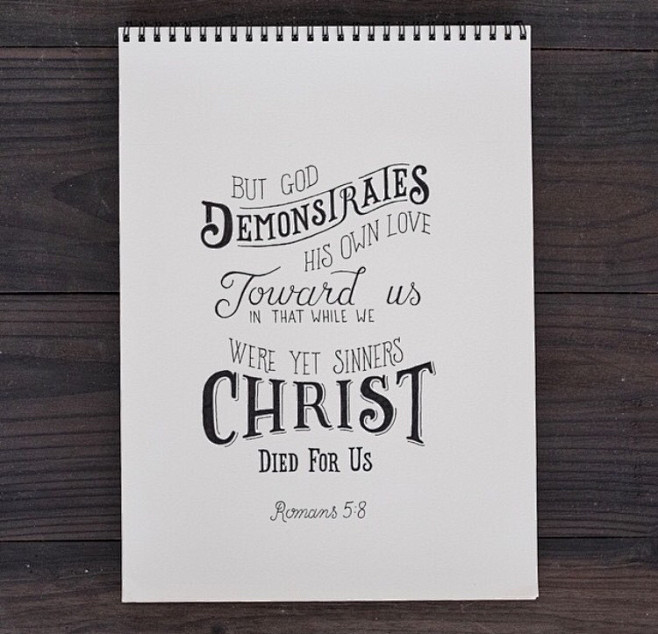 BUT GOD
DEMONSTRATES
HIS OWN LOVE
Toward us
IN THAT WHILE WE
WERE YET SINNERS
CHRIST
DIED FOR US
Romans 5:8